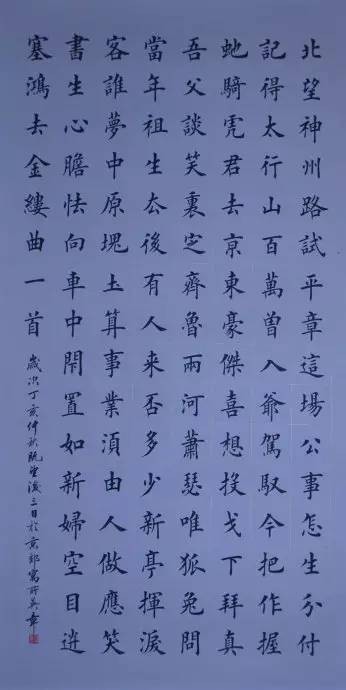 北望神州路試平章這場公事怎生分付
記得太行山百萬曽入爺駕馭今把作握
虵騎虎君去亰東豪傑喜想投戈下拜真
吾父談笑裏定齊魯兩河蕭瑟唯狐兔問
當年祖生去後有人来否多少新亭揮淚
客誰夢中原塊土算事業須由人做應笑
書生心膽怯向車中閇置如新婦空目送
塞鴻去金縷曲一首
歲次丁亥仲秋既望後三日於京郊寓所